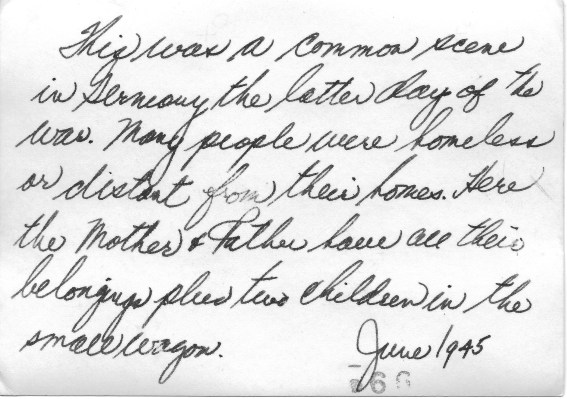 This was a common scene
in Germany the latter day of the
war. Many people were homeless
or distant from their homes. Here
the Mother & Father have all their
belongings plus two children in the
small wagon.
June 1945